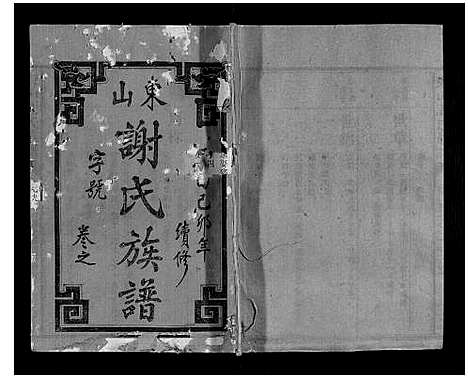 己卯年
續修
東山
謝氏族譜
字號
卷之